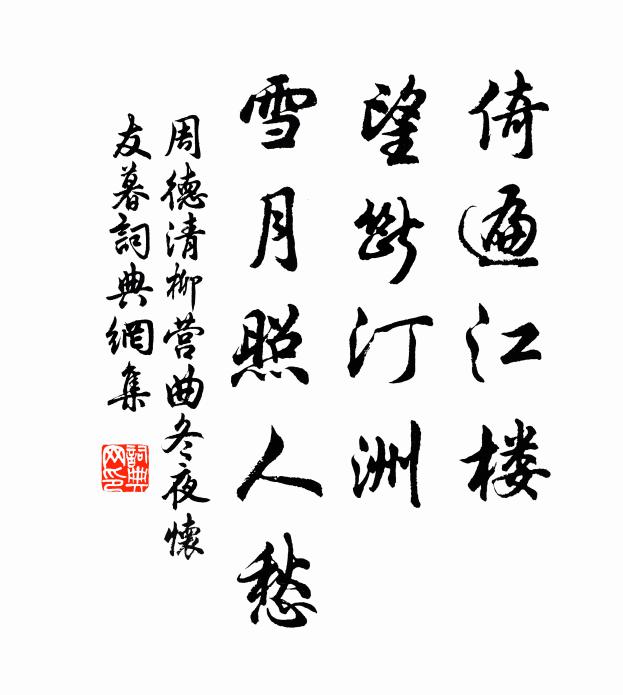 倚遍江楼
望断汀洲
雪月照人愁
周德清柳营曲冬夜懷
友暮詞典網集
詞典网印